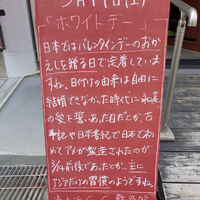 「ホワイトデー」
日本ではバレンタインデーのおか
えしを贈る日で定着していま
すね。日付けの由来は自由に
結婚できなかった時代に永遠
の愛を誓った日だとか、古
事記や日本書記で日本でわ
めてアメが製造されたのが
3/14前後であったとか。主に
アジアだけの習慣のようですね。